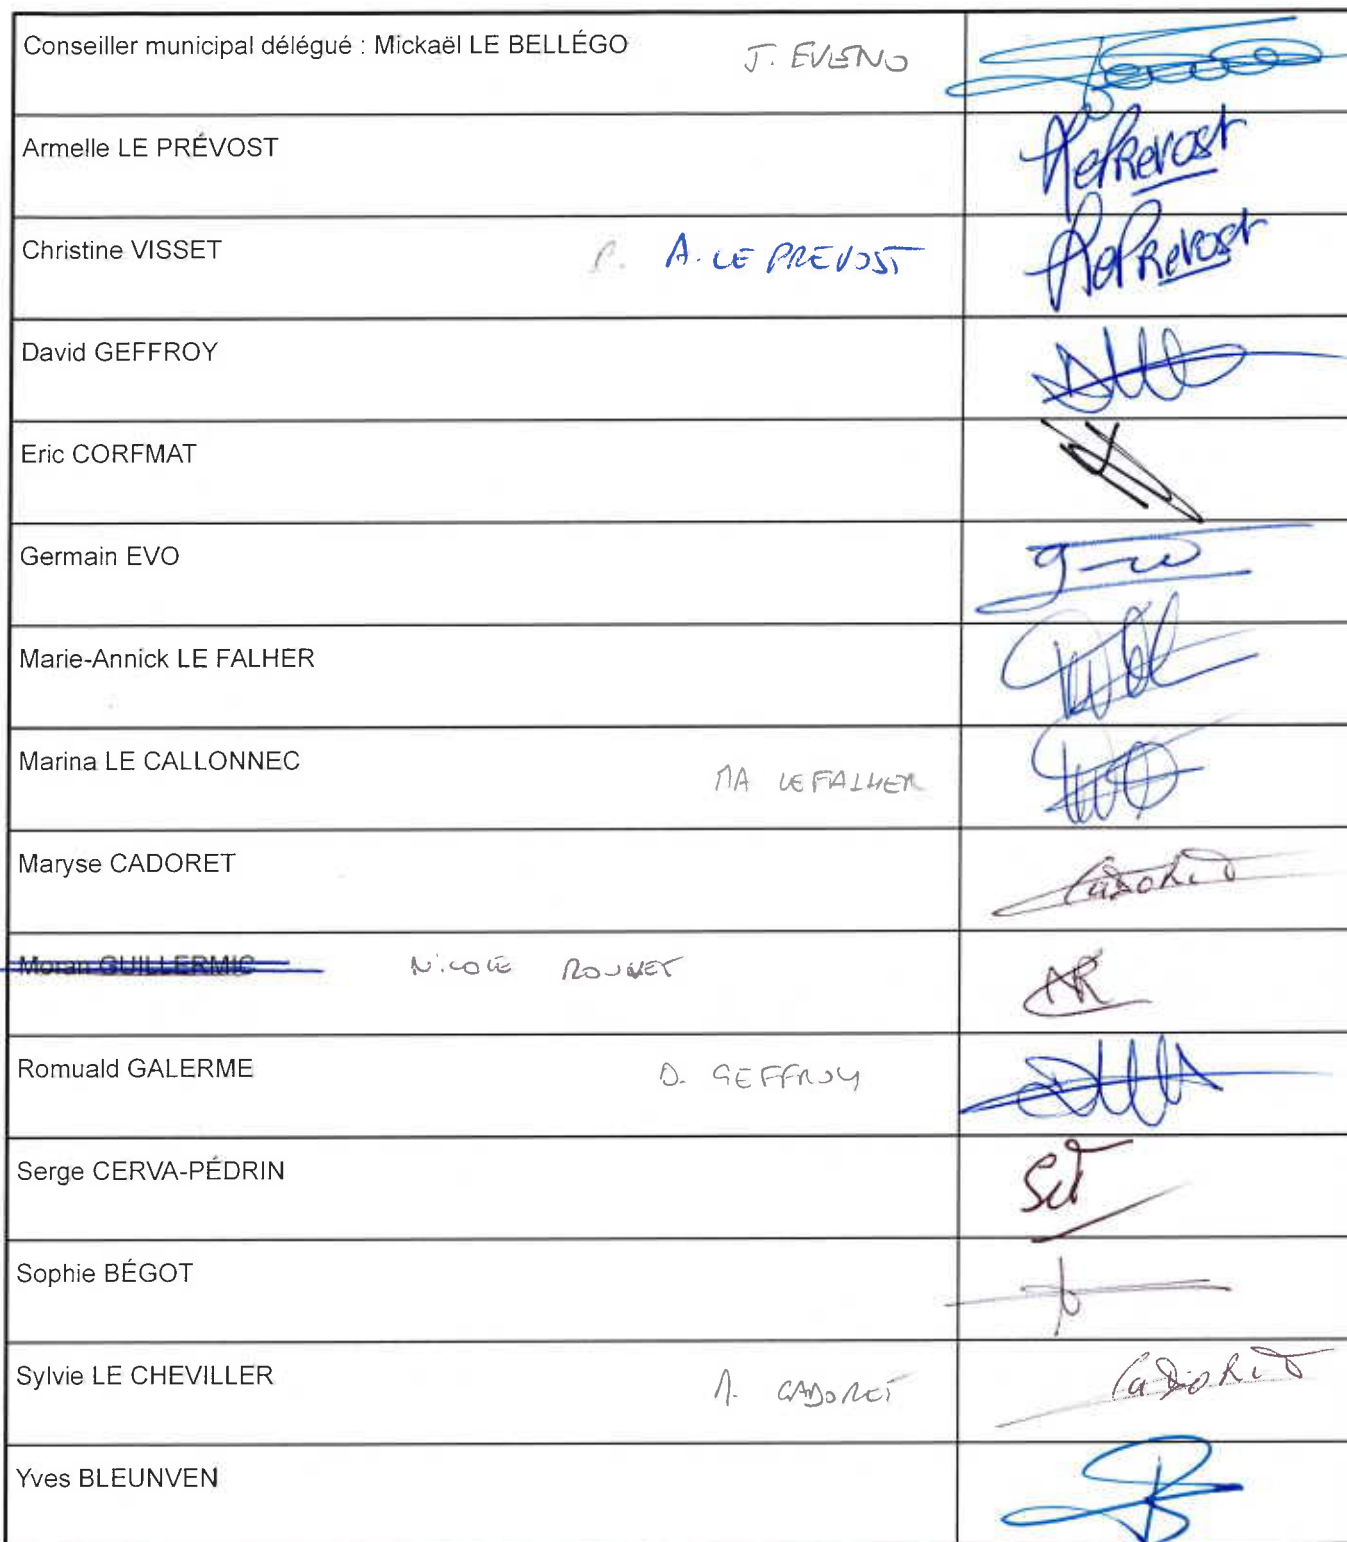 Conseiller municipal délégué : Mickaël LE BELLÉGO J. EVENO
Armelle LE PRÉVOST LePrevost
Christine VISSET P. A. LE PREVOST LePrevost
David GEFFROY
Eric CORFMAT
Germain EVO
Marie-Annick LE FALHER
Marina LE CALLONNEC MA LE FALHER
Maryse CADORET Cadoret
Moran GUILLERMIC Nicole ROUNET
Romuald GALERME D. GEFFROY
Serge CERVA-PÉDRIN
Sophie BÉGOT
Sylvie LE CHEVILLER M. CADORET Cadoret
Yves BLEUNVEN